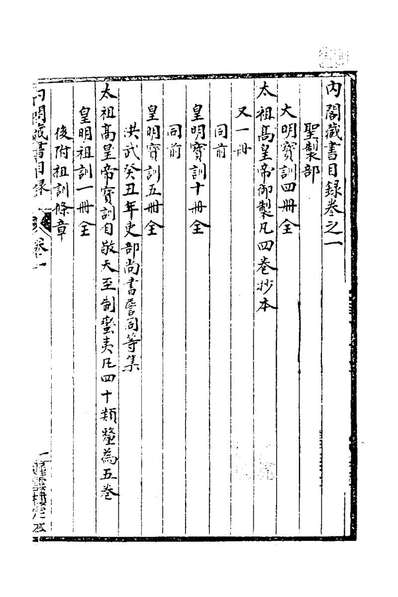 內閣藏書目録卷之一
聖製部
大明寶訓四冊全
太祖高皇帝御製凡四卷抄本
又一冊
同前
皇明寶訓十冊全
同前
皇明寶訓五冊全
洪武癸丑年吏部尚書詹同等集
太祖高皇帝寶訓自敬天至制蠻夷凡四十類釐為五卷
皇明祖訓一冊全
後附祖訓條章
內閣藏書目録
卷一
一